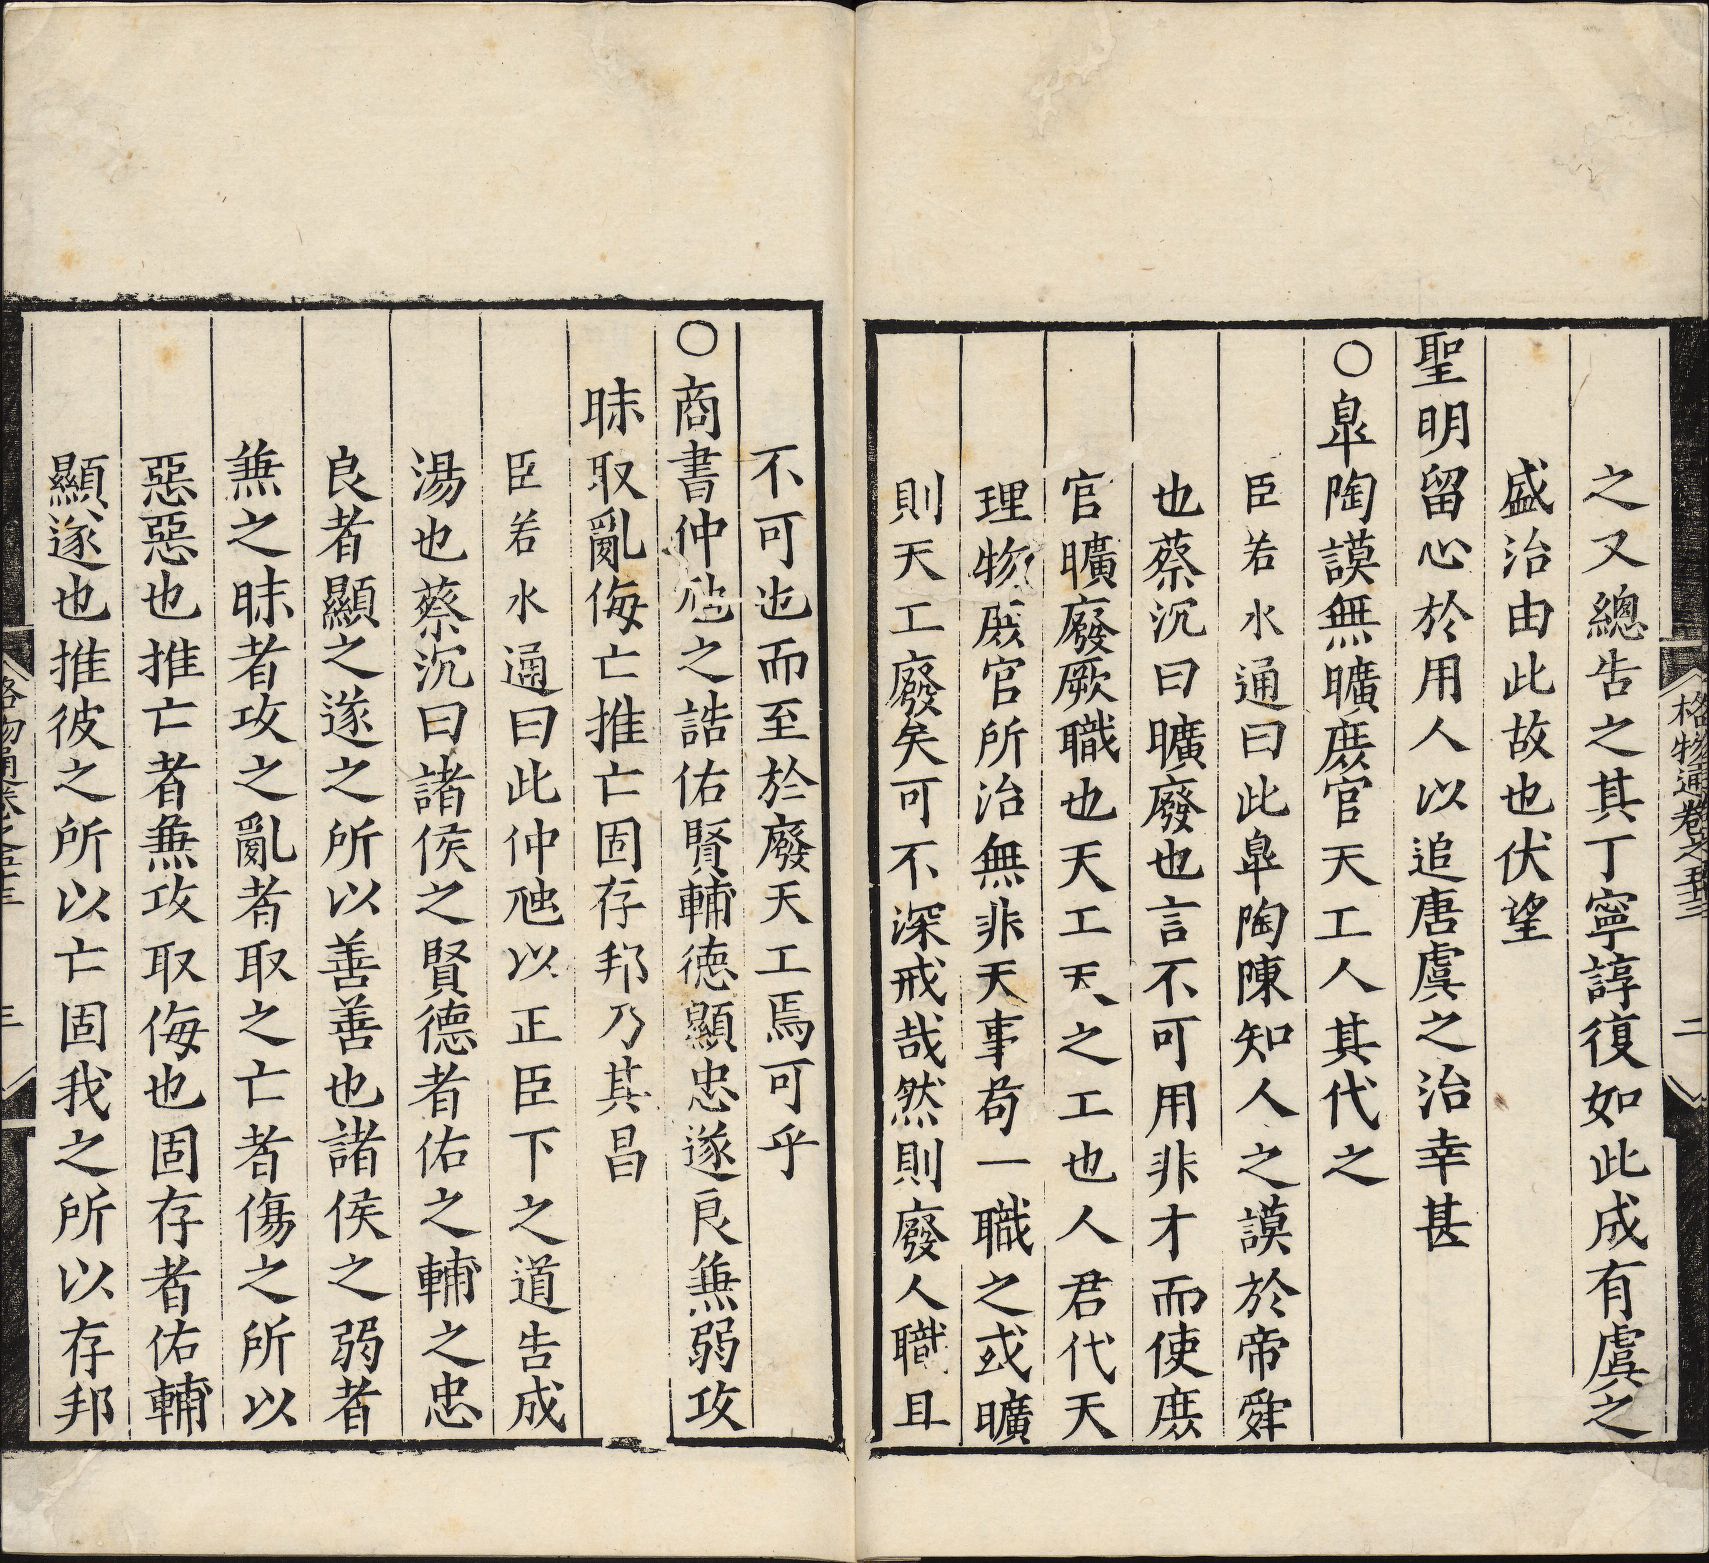 之又總告之其丁寧諄復如此成有虞之
盛治由此故也伏望
聖明留心於用人以追唐虞之治幸甚
○臯陶謨無曠庶官天工人其代之
臣若水通曰此臯陶陳知人之謨於帝舜
也蔡沉曰曠廢也言不可用非才而使庶
官曠廢厥職也天工天之工也人君代天
理物庶官所治無非天事苟一職之或曠
則天工廢矣可不深戒哉然則廢人職且
格物通卷之五十三
二
不可也而至於廢天工焉可乎
○商書仲虺之誥佑賢輔徳顯忠遂良兼弱攻
昧取亂侮亡推亡固存邦乃其昌
臣若水通曰此仲虺以正臣下之道告成
湯也蔡沉曰諸侯之賢德者佑之輔之忠
良者顯之遂之所以善善也諸侯之弱者
兼之昧者攻之亂者取之亡者傷之所以
惡惡也推亡者兼攻取侮也固存者佑輔
顯遂也推彼之所以亡固我之所以存邦
格物通卷之五十三
三